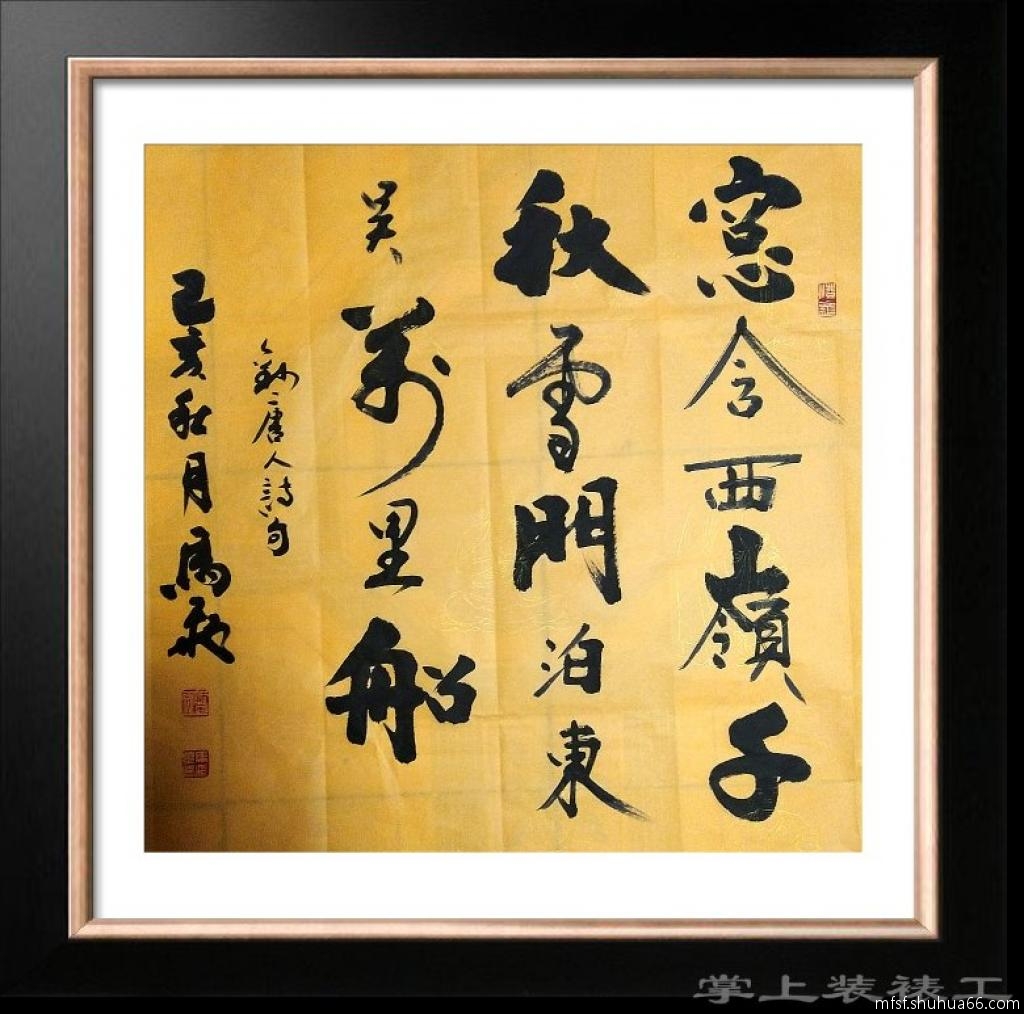 窓含西嶺千
秋雪門泊東
吴萬里船
唐人詩句
己亥秋月馬
掌上装裱工
mfsf.shuhua66.com